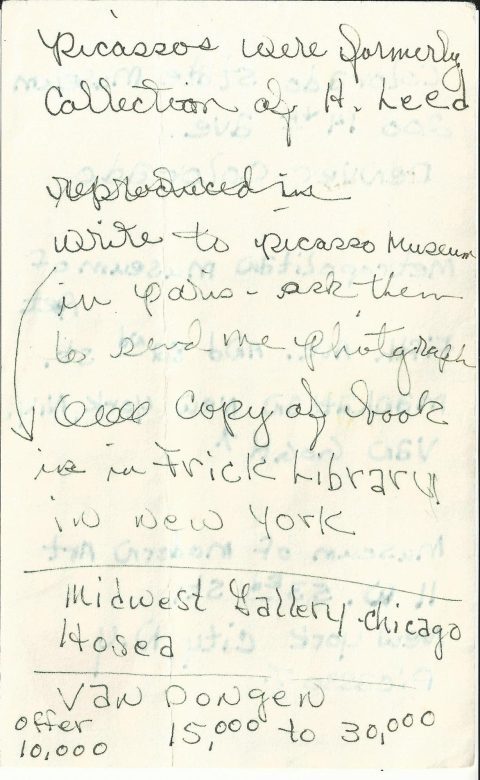 Picassos were formerly
Collection of H. Leed
reproduced in
write to picasso Museum
in Paris - ask them
to send me photograph
copy of book
is in Frick Library
in New York
Midwest Gallery - Chicago
Hosea
Van Dongen
offer
10,000
15,000 to 30,000